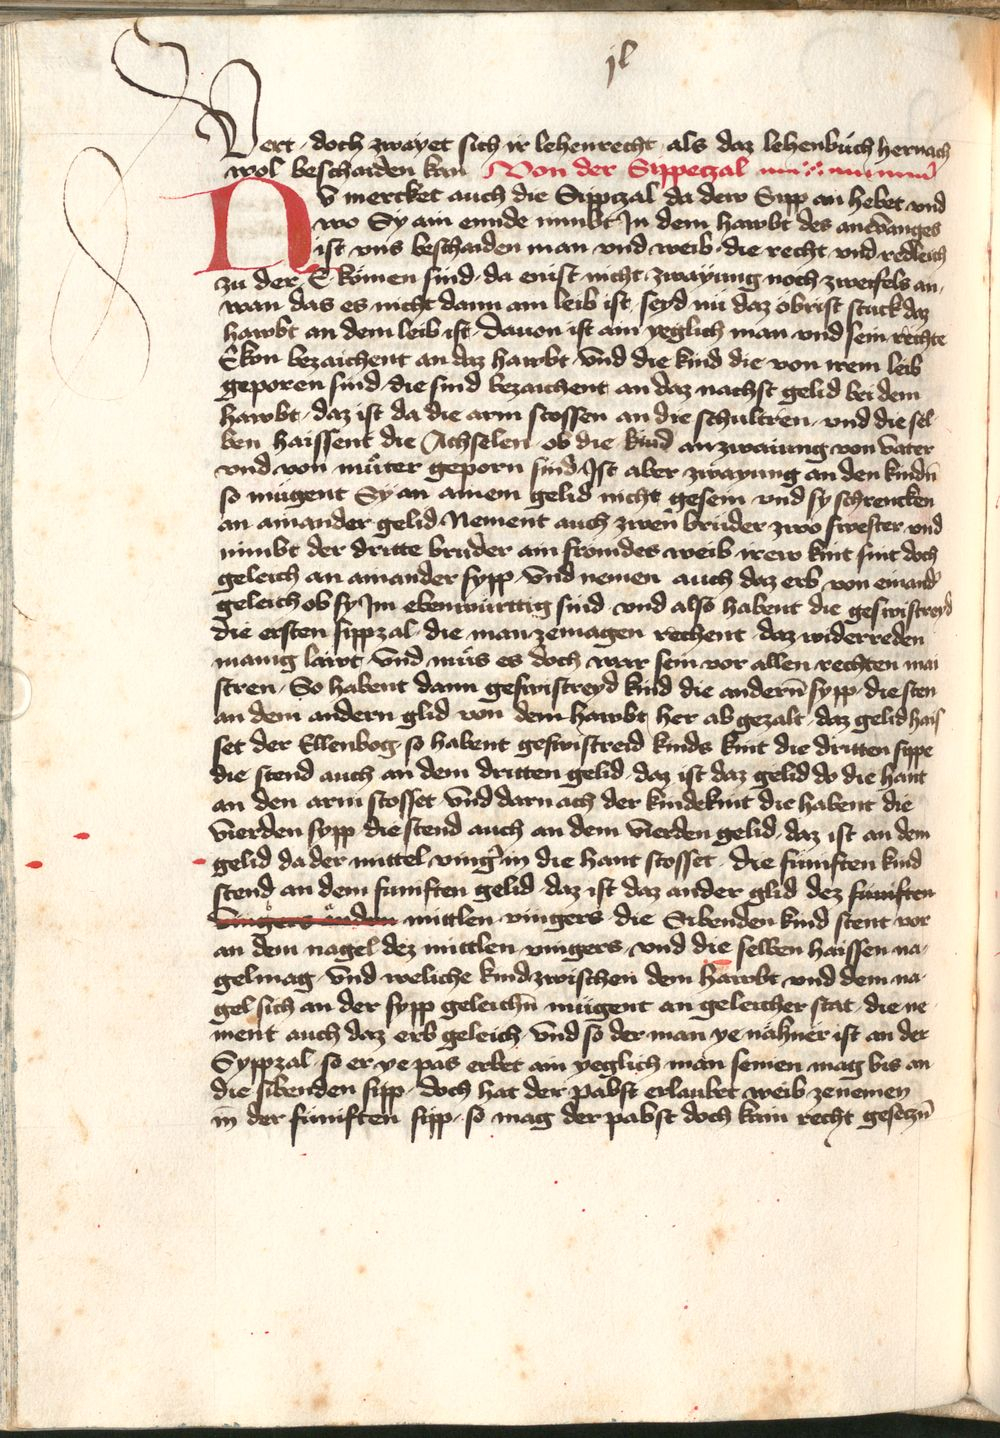 jl
Vert · doch zwayet sich ir lehenrecht · als daz lehenbuch hernach
wol beschaiden kan Von der Sippczal
Nv mercket auch die Sippczal da dew Sipp an hebet vnd
wo Sy ain ennde nimbt In dem hawbt des anevanges
ist vns beschaiden man vnd weib · die recht vnd redleich
zu der E komen sind · da enist nicht zwayung noch zweifels an ·
wan das es nicht dann ain leib ist · seyd nu daz obrist stuck daz
hawbt an dem leib ist · dauon ist ain yeglich man vnd sein rechte
Ekon bezaichent an daz hawbt · vnd die kind die von irem leib
geporen sind · die sind bezaichent an daz nachst gelid bei dem
hawbt · daz ist da die arm stossen an die schultren · vnd die sel-
ben haissent die Achselen · ob die kind an zwaiung von vater
vnd von muter geporn sind · Ist aber zwayung an den kindn̄
so mügent Sy an ainem gelid nicht gesein vnd sy schrencken
an ainander gelid Nement auch zwen bruder zwo swester vnd
nimbt der dritte bruder ain fromdes weib irew kint sint doch
geleich an ainander sypp · vnd nemen auch daz erb von einand'
geleich ob sy Im ebenwürttig sind · vnd also habent die geswistreyd
die ersten sippzal · die man zemagen rechent · daz widerreden
manig läwt · vnd mus es doch war sein vor allen rechten mai
stren · So habent dann geswistreyd kind die andern̄ sypp · die sten
an dem andern glid von dem hawbt her ab gezalt · daz gelid hais
set der Ellenbog · so habent geswistreid kinds kint die dritten sippe
die stend auch an dem dritten gelid · daz ist daz gelid do die hant
an den arm stosset · Vnd darnach der kindekint die habent die
vierden sypp · die stend auch an dem vierden gelid · daz ist an dem
gelid da der mittel ving' in die hant stosset · die fünften kind
stend an dem fünften gelid · daz ist daz ander glid dez fünften
mittlen vingers · die Sibenden kind stent vor
an dem nagel dez mittlen vingers · vnd die selben haissen na-
gelmag · vnd weliche kind zwischen dem hawbt vnd dem na-
gel sich an der sypp geleichn̄ mügent an geleicher stat · die ne
ment auch daz erb geleich · vnd so der man ye nähner ist an der
Syppzal · so er ye pas erbet · ain yeglich man seinen mag bis an
die sibenden sipp · doch hat der pabst erlaubet weib zenemen
in der fünften sipp · so mag der pabst doch kain recht gesetzn̄